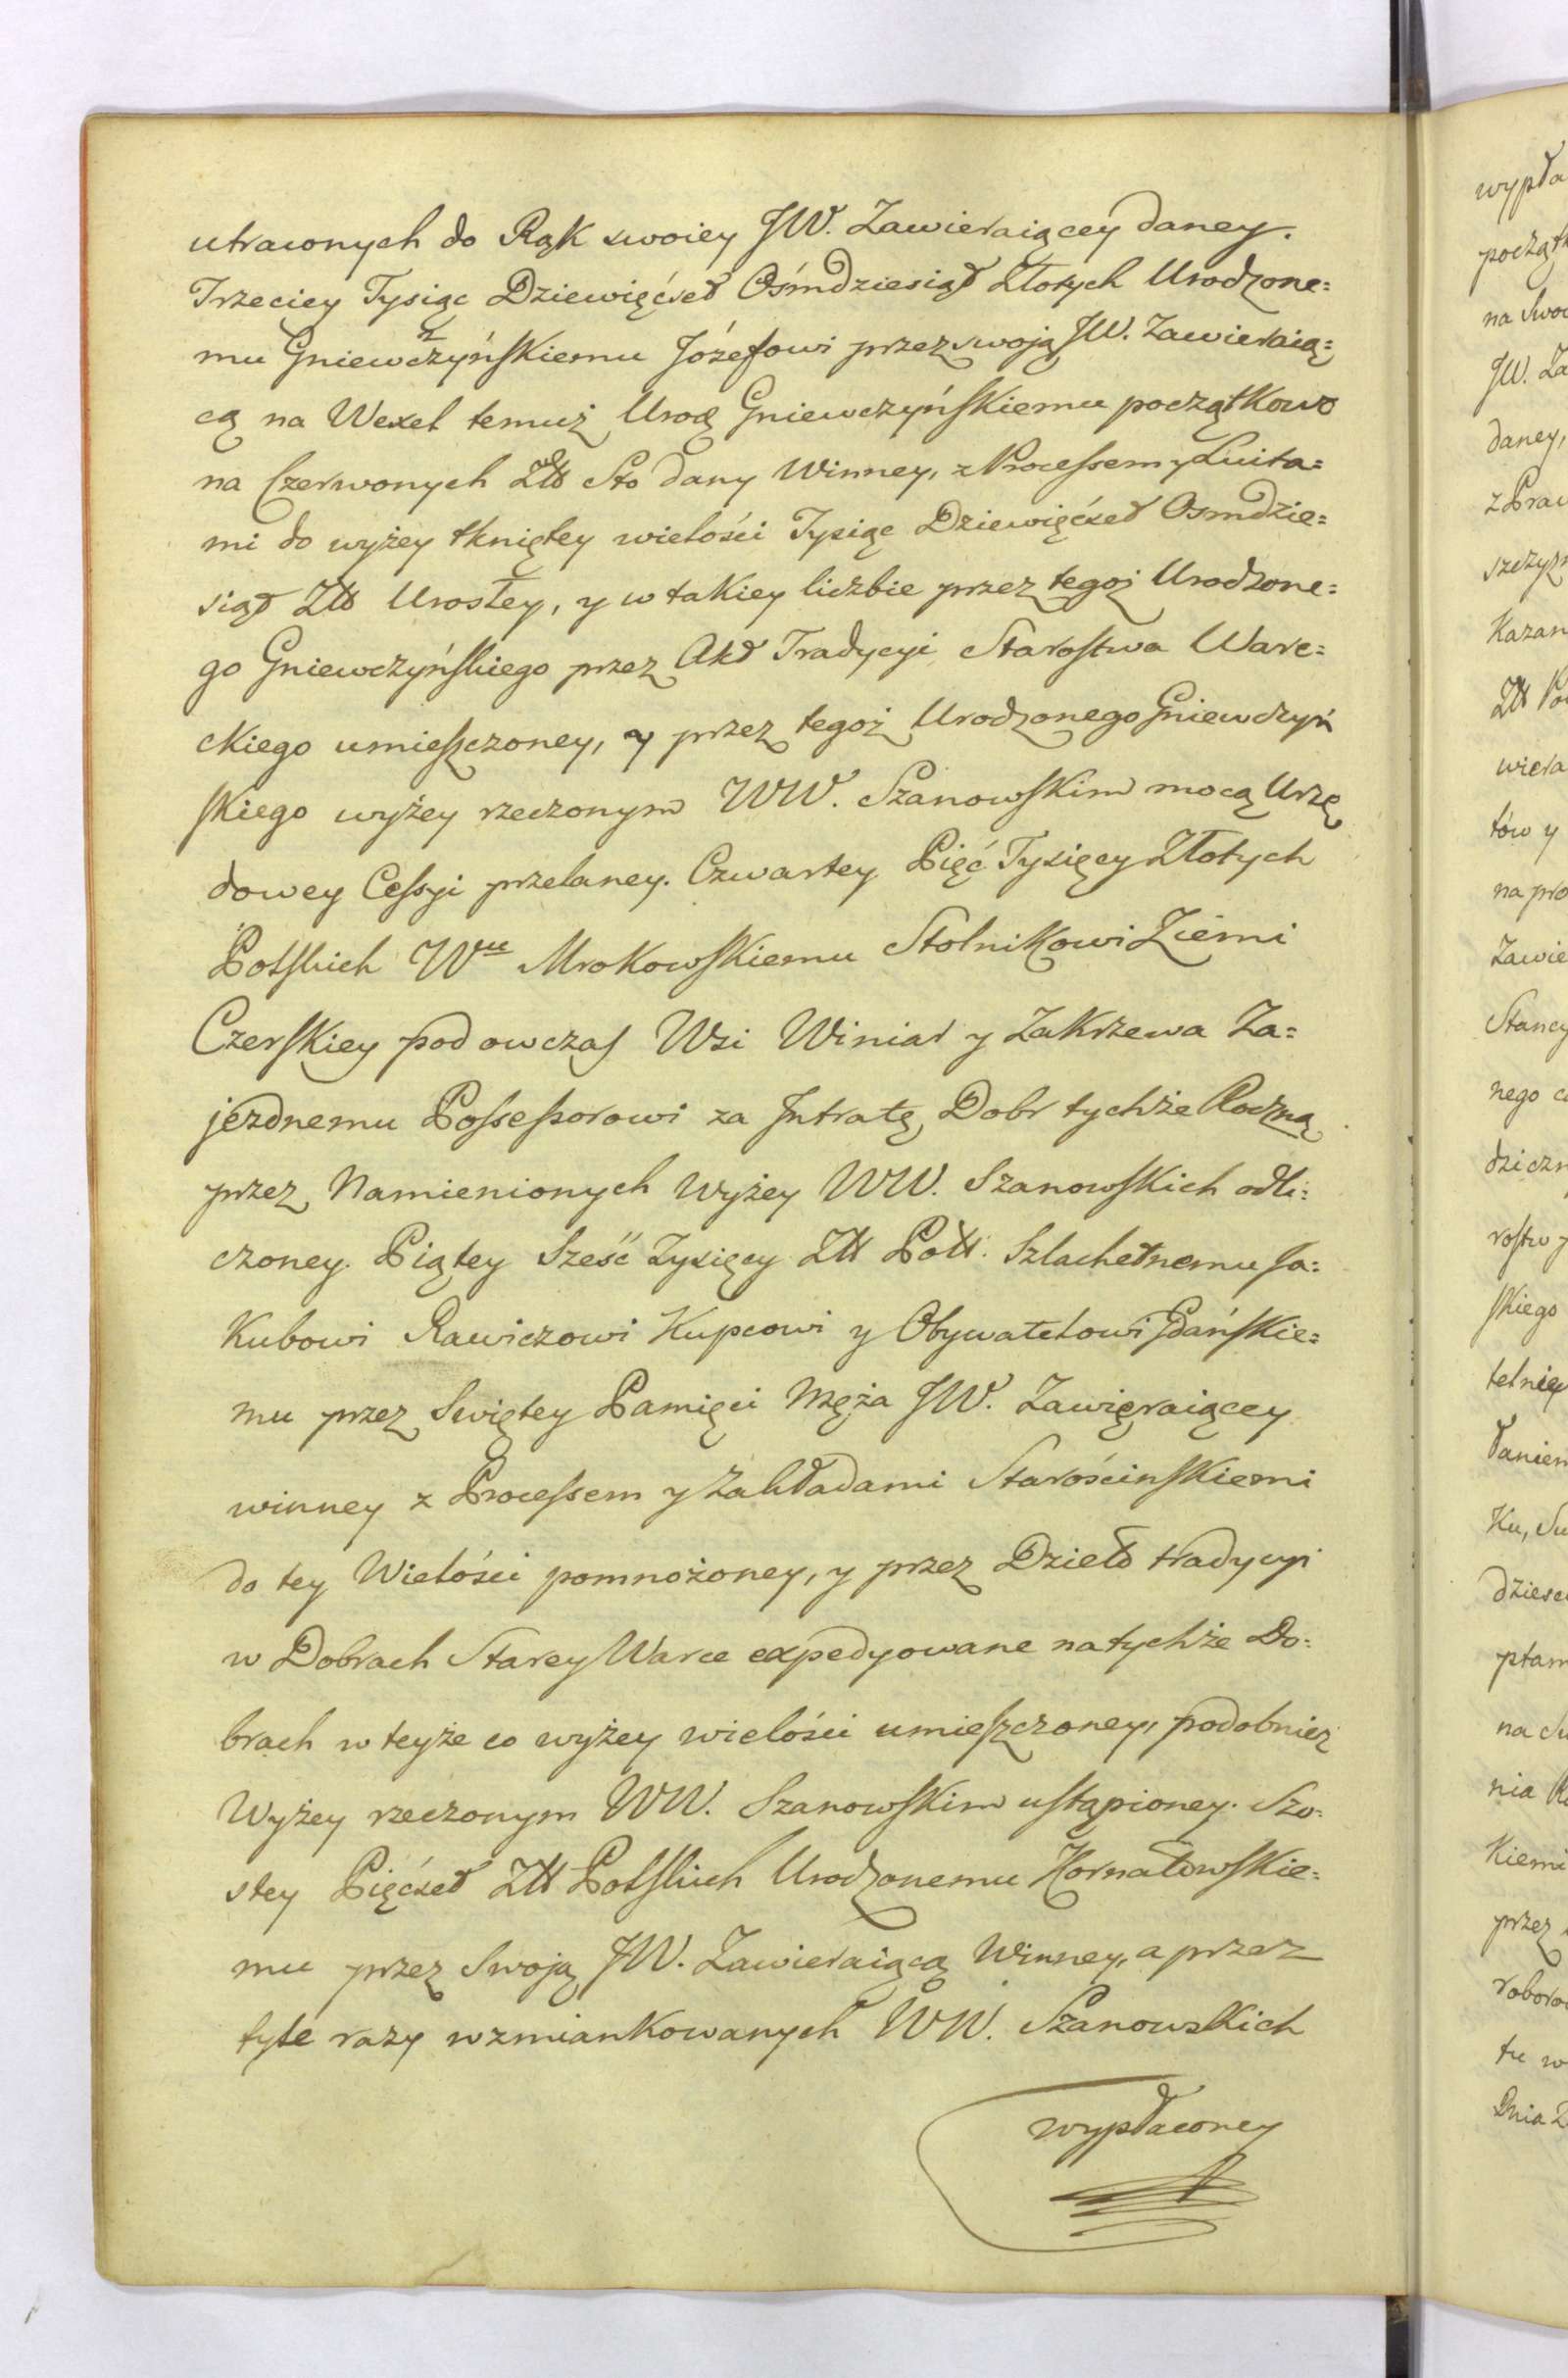 utraconych do Rąk swoiey JW. Zawieraiącey daney.
Trzeciey Tysiąc Dziewięćset Ośmdziesiąt Złotych Urodzone=
mu Gniewczyńskiemu Józefowi przez swoją JW. Zawieraią=
cą na Wexel temuż Urodz Gniewczyńskiemu początkowo
na Czerwonych Złł Sto dany Winney, z Processem y Luita=
mi do wyżey tkniętey wielości Tysiąc Dziewięćset Osmdzie=
siąt Złł Urosłey, y w takiey liczbie przez tegoż Urodzone=
go Gniewczyńskiego przez Akt Tradycyi Starostwa Ware=
ckiego umieszczoney, y przez tegoż Urodzonego Gniewczyń
skiego wyżey rzeczonym WW. Szanowskim mocą Urzę
dowey Cessyi przelaney. Czwartey Pięć Tysięcy Złotych
Polskich Wu Mrokowskiemu Stolnikowi Ziemi
Czerskiey pod owczas Wsi Winiar y Zakrzewa Za=
jezdnemu Possessorowi za Intratę Dobr tychże Roczną
przez Namienionych Wyżey WW. Szanowskich odli=
czoney. Piątey Sześć Tysięcy Złł Poll. Szlachetnemu Ja=
Kubowi Rawiczowi Kupcowi y Obywatelowi Gdańskie=
mu przez Swiętey Pamięci Męża JW. Zawięraiącey
winney z Processem y Zakładami Starościnskiemi
do tey Wielości pomnożoney, y przez Dzieło tradycyi
w Dobrach Starey Warce expedyowane na tychże Do=
brach w teyże co wyżey wielości umieszczoney, podobnież
Wyżey rzeczonym WW. Szanowskim ustąpioney. Szo=
stey Pięćset Złł Polskich Urodzonemu Kornatowskie=
mu przez Swoją JW. Zawieraiącą Winney, a przez
tyle razy wzmiankowanych WW. Szanowskich
wypłaconey